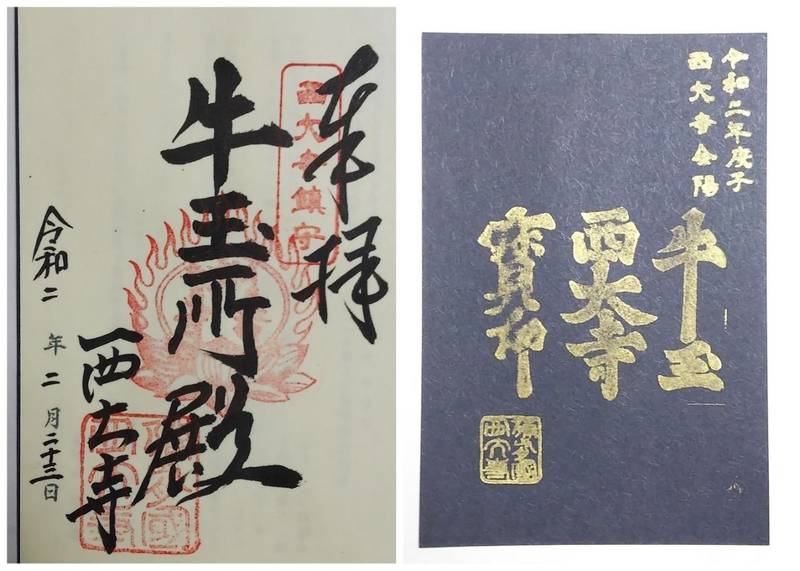 奉拝
西大寺鎮守
牛玉所殿
西大寺
令和二年二月二十三日
令和二年庚子
西大寺会陽
牛玉
西大寺
寶印